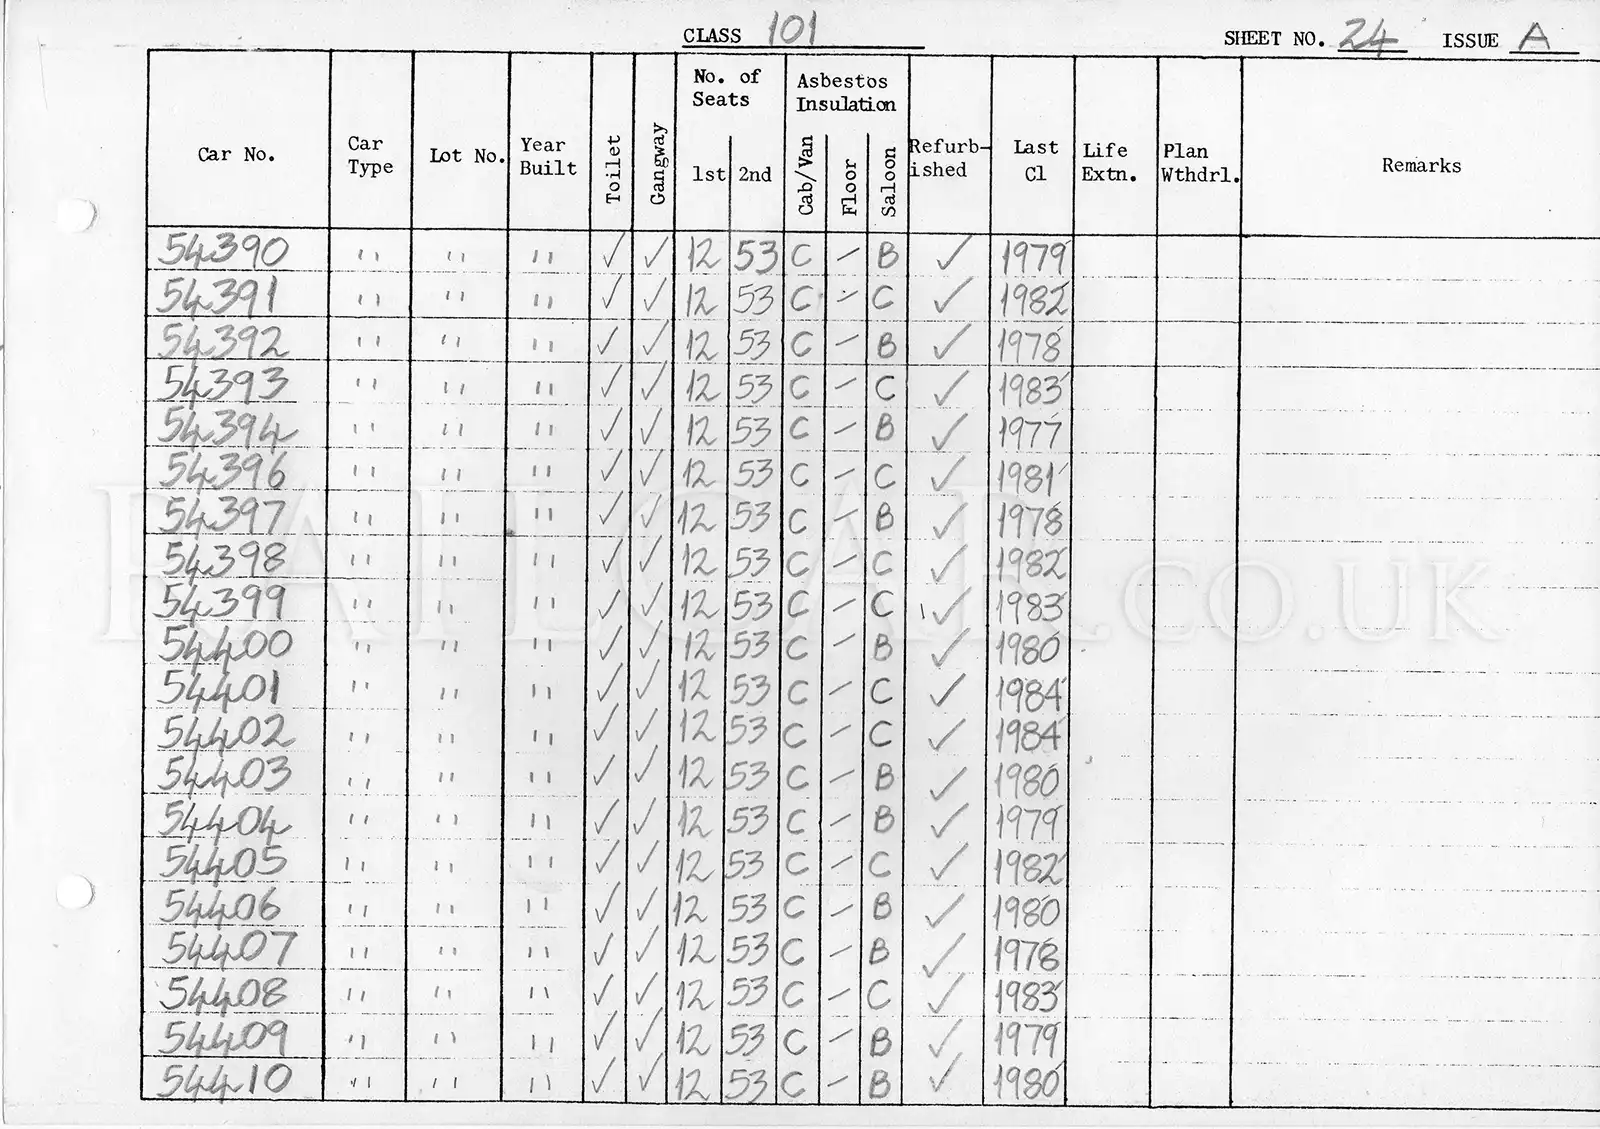 CLASS 101 SHEET NO. 24 ISSUE A
Car No. Car Type Lot No. Year Built Toilet Gangway No. of Seats 1st 2nd Asbestos Insulation Cab/Van Floor Saloon Refurb-ished Last Cl Life Extn. Plan Wthdrl. Remarks
54390 " " " ✓ ✓ 12 53 C – B ✓ 1979
54391 " " " ✓ ✓ 12 53 C – C ✓ 1982
54392 " " " ✓ ✓ 12 53 C – B ✓ 1978
54393 " " " ✓ ✓ 12 53 C – C ✓ 1983
54394 " " " ✓ ✓ 12 53 C – B ✓ 1977
54396 " " " ✓ ✓ 12 53 C – C ✓ 1981
54397 " " " ✓ ✓ 12 53 C – B ✓ 1978
54398 " " " ✓ ✓ 12 53 C – C ✓ 1982
54399 " " " ✓ ✓ 12 53 C – C ✓ 1983
54400 " " " ✓ ✓ 12 53 C – B ✓ 1980
54401 " " " ✓ ✓ 12 53 C – C ✓ 1984
54402 " " " ✓ ✓ 12 53 C – C ✓ 1984
54403 " " " ✓ ✓ 12 53 C – B ✓ 1980
54404 " " " ✓ ✓ 12 53 C – B ✓ 1979
54405 " " " ✓ ✓ 12 53 C – C ✓ 1982
54406 " " " ✓ ✓ 12 53 C – B ✓ 1980
54407 " " " ✓ ✓ 12 53 C – B ✓ 1978
54408 " " " ✓ ✓ 12 53 C – C ✓ 1983
54409 " " " ✓ ✓ 12 53 C – B ✓ 1979
54410 " " " ✓ ✓ 12 53 C – B ✓ 1980
RAILCAR.CO.UK